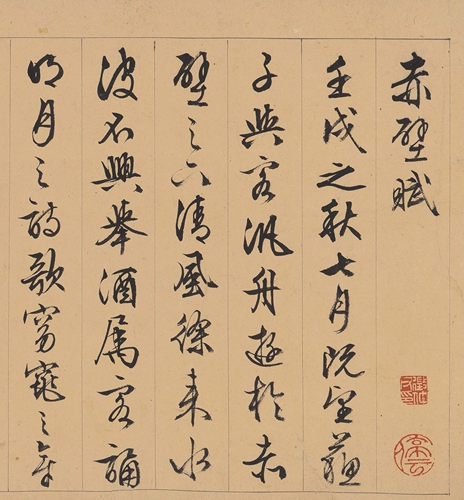 赤壁賦
壬戌之秋七月既望蘇
子與客汎舟遊於赤
壁之下清風徐來水
波不興舉酒属客誦
明月之詩歌窈窕之章